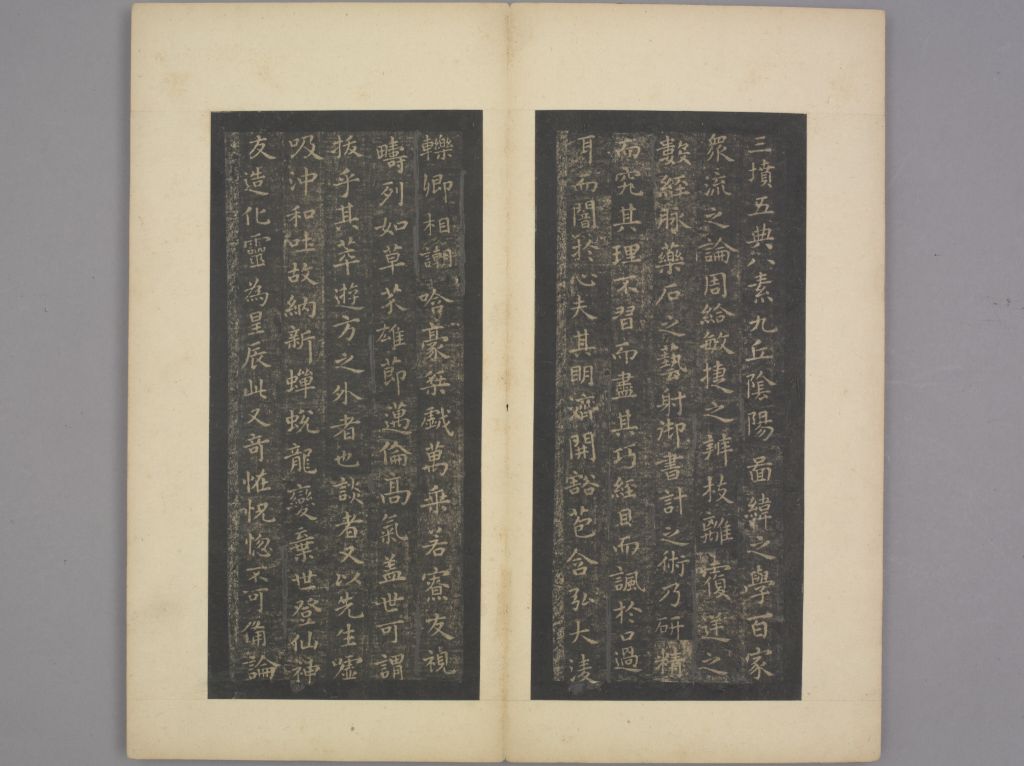 三墳五典八素九丘陰陽啚緯之學百家
衆流之論周給敏捷之辨枝離覆逆之
數經脉藥石之藝射御書計之術乃研精
而究其理不習而盡其巧經目而諷於口過
耳而闇於心夫其明濟開豁苞含弘大淩
轢卿相謿哈豪桀戱萬乗若寮友視
疇列如草芥雄節邁倫高氣盖世可謂
拔乎其萃遊方之外者也談者又以先生噓
吸沖和吐故納新蟬蛻龍變棄世登仙神
友造化靈為星辰此又奇恠怳惚不可備論